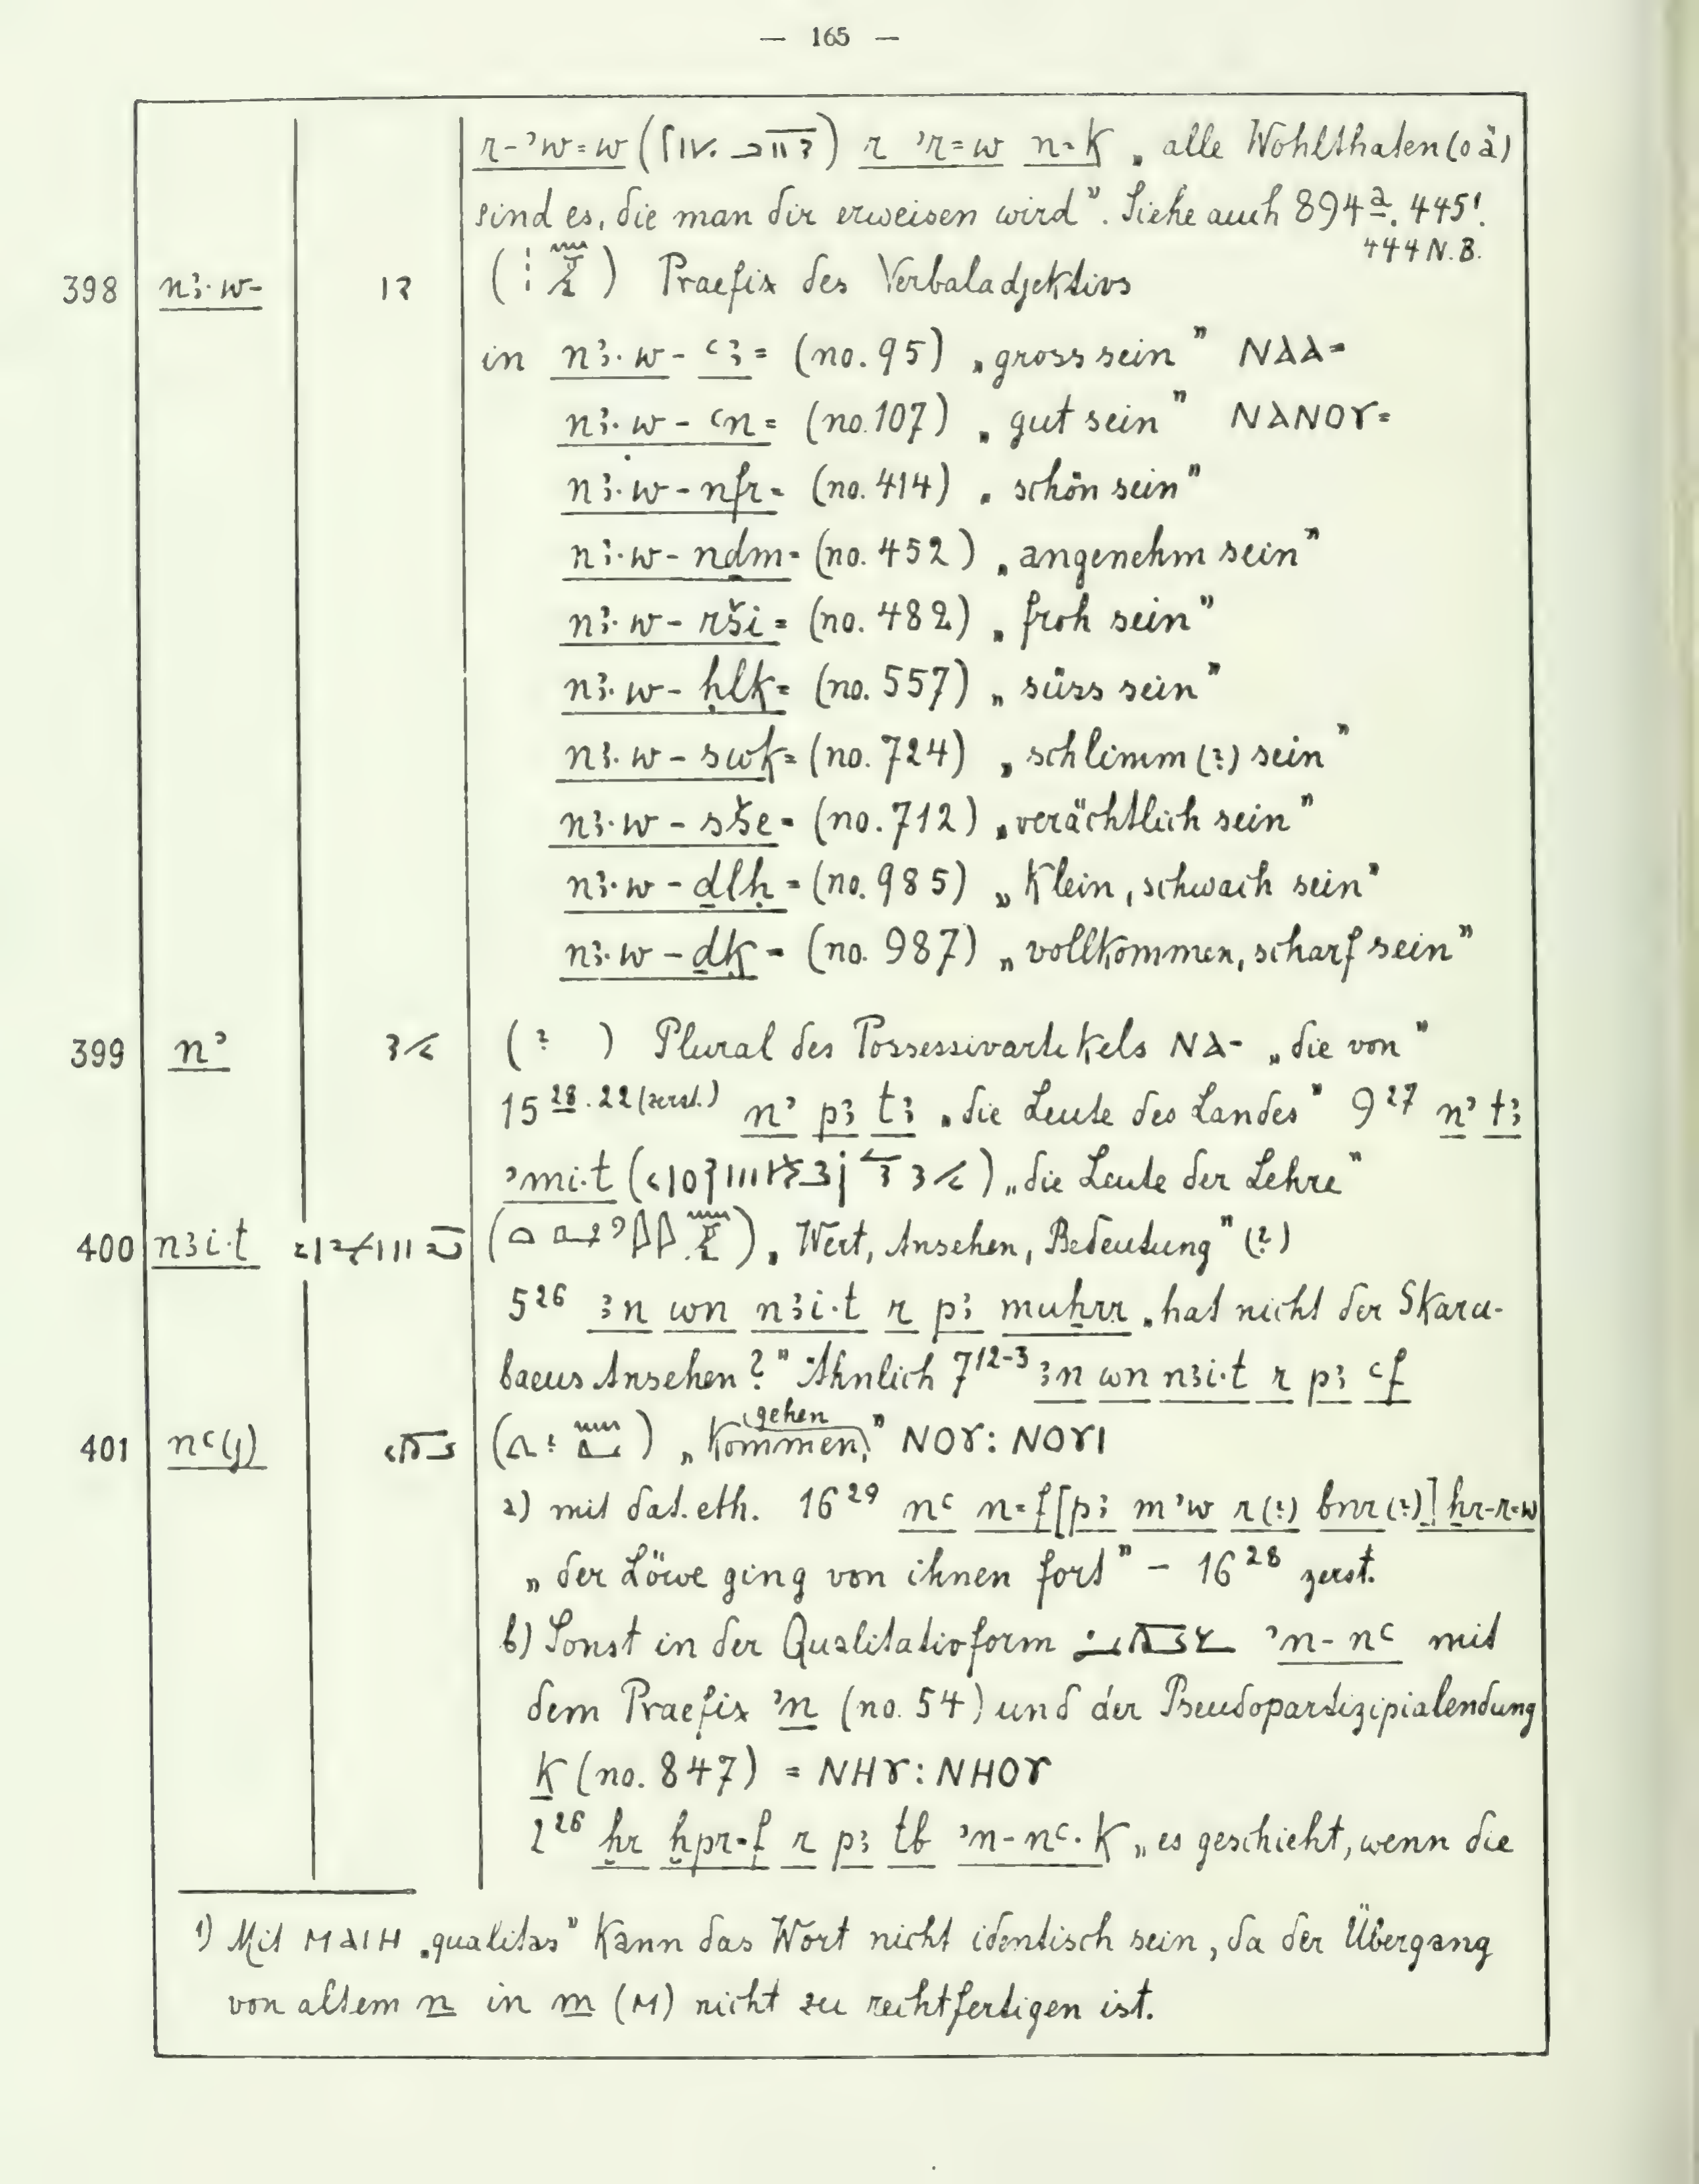 — 165 —
r-ʾw=w ( ) r ʾr=w n=k „alle Wohlthaten (o ä)
sind es, die man dir erweisen wird". Siehe auch 894a. 445!
444 N.B.
398 nꜣ·w- ( ) Praefix des Verbaladjektivs
in nꜣ·w-ꜥꜣ= (no. 95) „gross sein" ⲚⲀⲀ=
nꜣ·w-ꜥn= (no. 107) „gut sein" ⲚⲀⲚⲞⲨ=
nꜣ·w-nfr= (no. 414) „schön sein"
nꜣ·w-nḏm= (no. 452) „angenehm sein"
nꜣ·w-rši= (no. 482) „froh sein"
nꜣ·w-ḥlḳ= (no. 557) „süss sein"
nꜣ·w-swk= (no. 724) „schlimm (?) sein"
nꜣ·w-sše= (no. 712) „verächtlich sein"
nꜣ·w-ḏlḥ= (no. 985) „klein, schwach sein"
nꜣ·w-ḏḳ= (no. 987) „vollkommen, scharf sein"
399 nʾ (? ) Plural des Possessivartikels ⲚⲀ- „die von"
15 28.22 (zerst.) nʾ pꜣ tꜣ „die Leute des Landes" 9 27 nʾ tꜣ
ʾmi·t ( ) „die Leute der Lehre"
400 nꜣi·t ( ) „Wert, Ansehen, Bedeutung" (?)
5 26 ꜣn wn nꜣi·t r pꜣ muḫrr „hat nicht der Skara-
baeus Ansehen?" Ähnlich 7 12-3 ꜣn wn nꜣi·t r pꜣ ꜥf
401 nꜥ(j) ( ) „kommen, gehen" ⲚⲞⲨ: ⲚⲞⲨⲒ
a) mit dat. eth. 16 29 nꜥ n=f [pꜣ mʾw r(?) bnr(?)] ḫr-r=w
„der Löwe ging von ihnen fort" — 16 28 zerst.
b) Sonst in der Qualitativform ʾn-nꜥ mit
dem Praefix ʾn (no. 54) und der Pseudopartizipialendung
k (no. 847) = ⲚⲎⲨ: ⲚⲎⲞⲨ
2 26 ḫr ḫpr=f r pꜣ tb ʾn-nꜥ·k „es geschieht, wenn die
1) Mit ⲘⲀⲒⲎ „qualitas" kann das Wort nicht identisch sein, da der Übergang
von altem n in m (Ⲙ) nicht zu rechtfertigen ist.